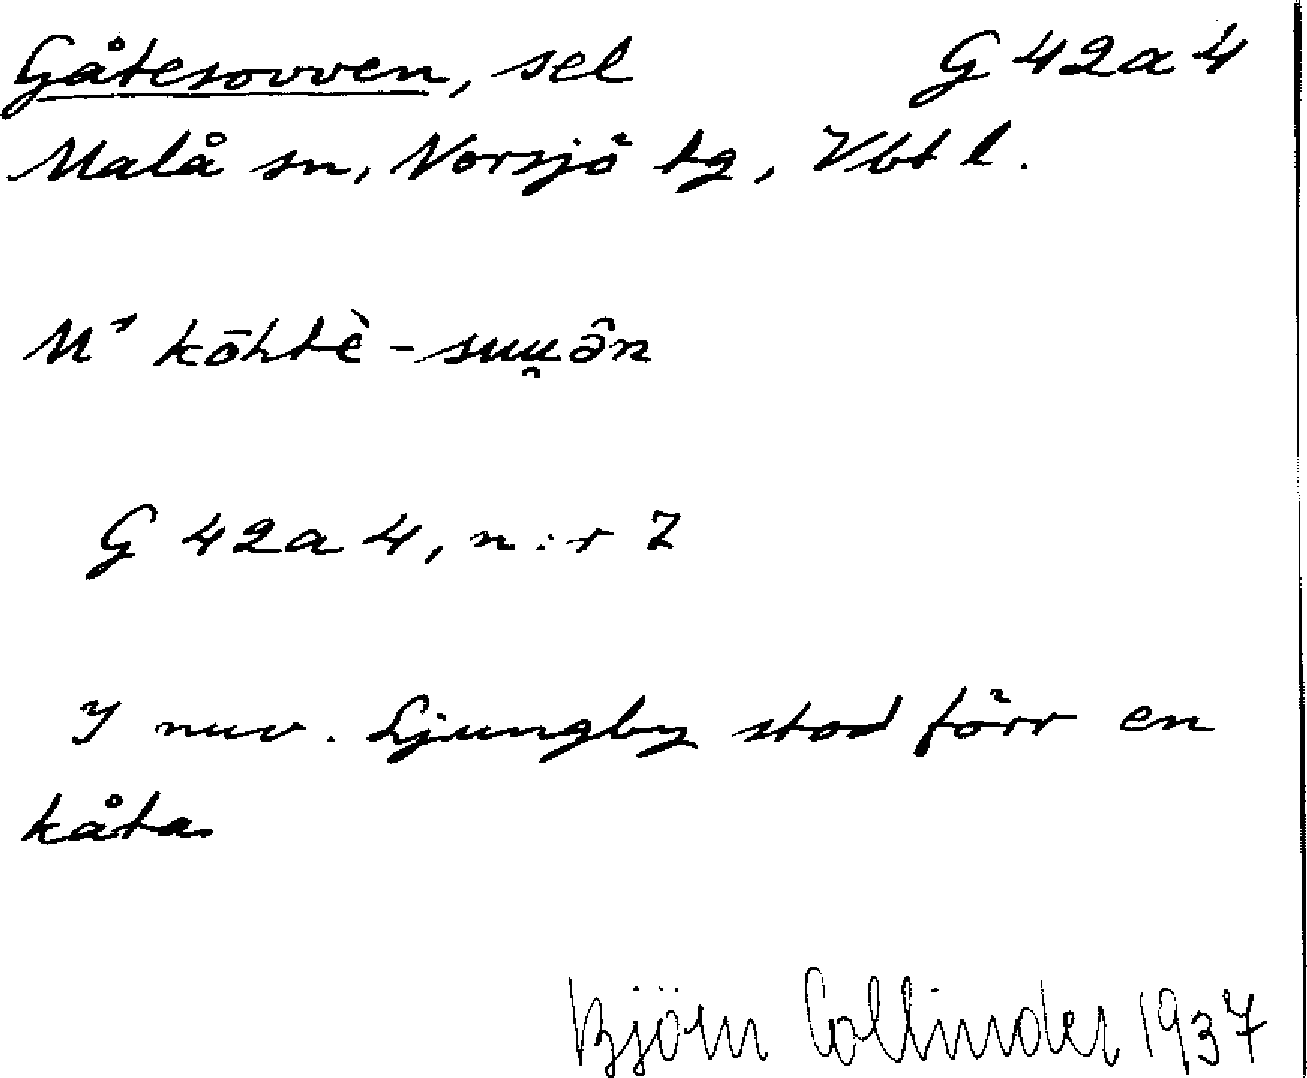 Gåtesovven, sel G 42a 4
Malå sn, Norsjö tg, Vbt l.
M¹ kōhtè-suu̯ən
G 42a 4, n:r 7
I nuv. Ljungby stod förr en
kåta
Björn Collinder 1937